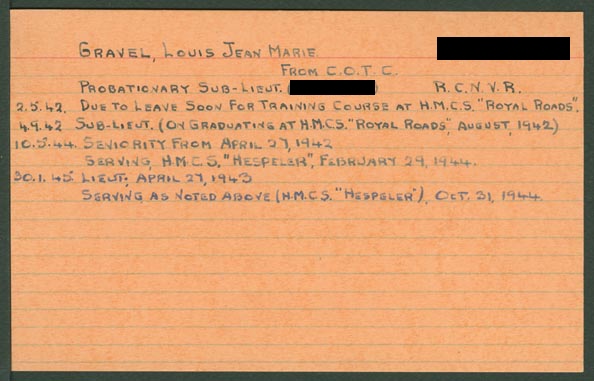 GRAVEL, LOUIS JEAN MARIE.
FROM C.O.T.C.
PROBATIONARY SUB-LIEUT. ( ) R.C.N.V.R.
2.5.42. DUE TO LEAVE SOON FOR TRAINING COURSE AT H.M.C.S. "ROYAL ROADS".
4.9.42 SUB-LIEUT. (ON GRADUATING AT H.M.C.S. "ROYAL ROADS", AUGUST, 1942)
10.5.44. SENIORITY FROM APRIL 27, 1942
SERVING, H.M.C.S. "HESPELER", FEBRUARY 29, 1944.
30.1.45. LIEUT., APRIL 27, 1943
SERVING AS NOTED ABOVE (H.M.C.S. "HESPELER"), OCT. 31, 1944.